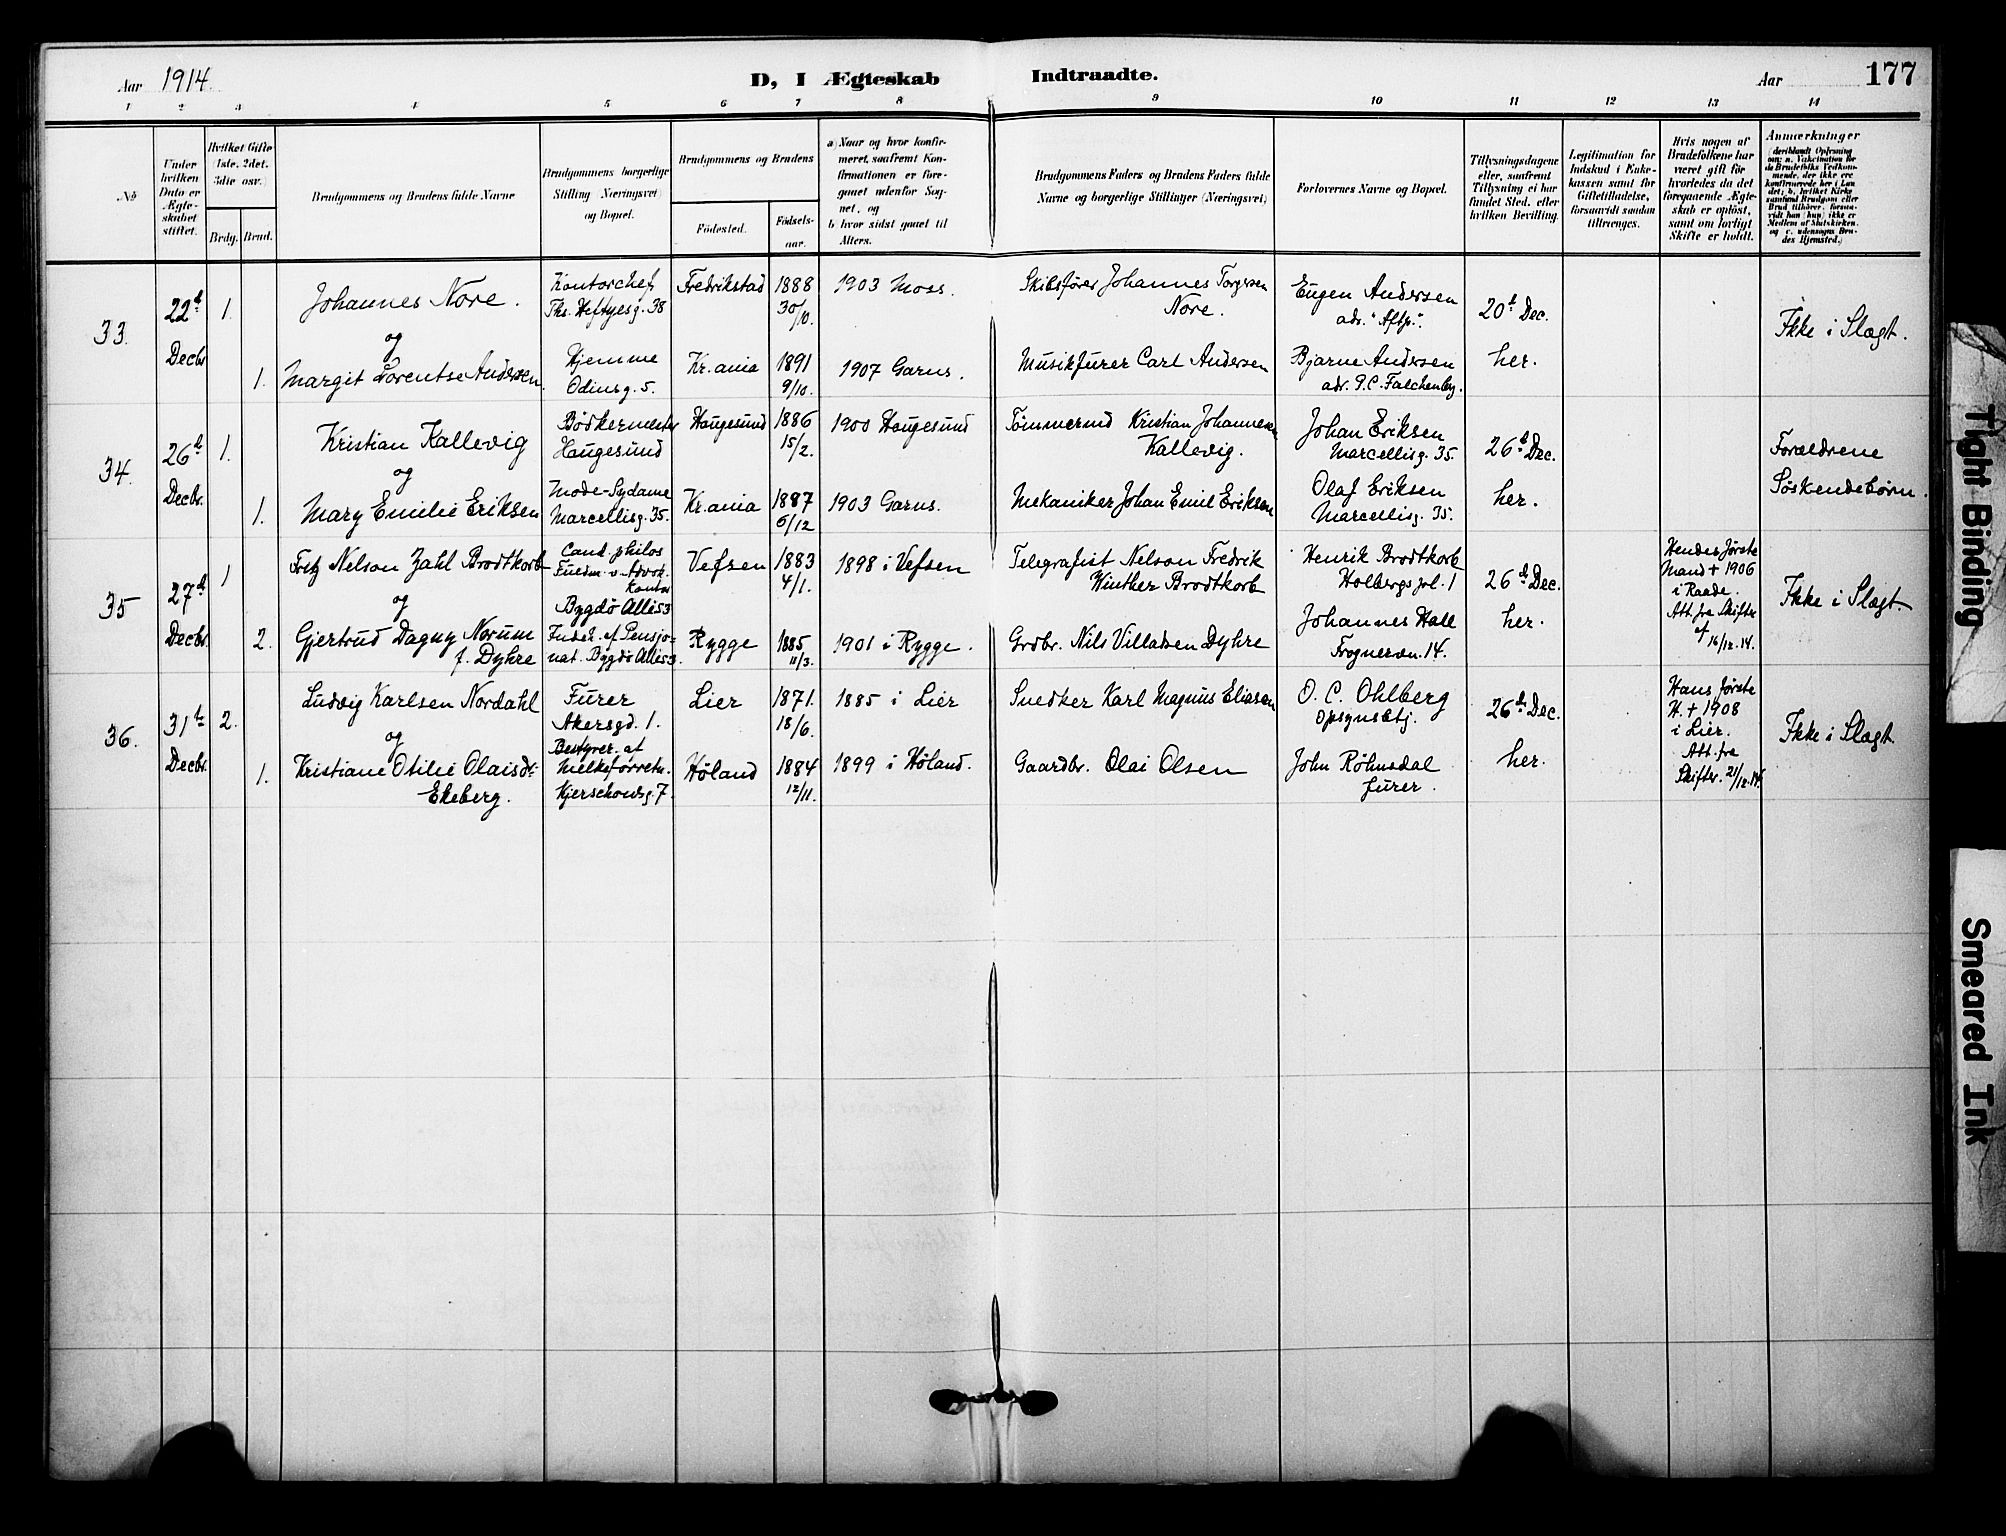 Aar 1914.
D, I Ægteskab Indtraadte.
Aar
177
1 2 3 4 5 6 7 8 9 10 11 12 13 14
No
Under
hvilken
Dato er
Ægte-
skabet
stiftet.
Hvilket Gifte
(1ste, 2det,
3die osv.)
Brdg. Brud.
Brudgommens og Brudens fulde Navne
Brudgommens borgerlige
Stilling (Næringsvei)
og Bopæl.
Brudgommens og Brudens
Fødested.
Fødsels-
aar.
a) Naar og hvor konfir-
meret, saafremt Kon-
firmationen er fore-
gaaet udenfor Sog-
net, og
b hvor sidst gaaet til
Alters.
Brudgommens Faders og Brudens Faders fulde
Navne og borgerlige Stillinger (Næringsvei)
Forlovernes Navne og Bopæl.
Tillysningsdagene
eller, saafremt
Tillysning ei har
fundet Sted, efter
hvilken Bevilling.
Legitimation for
Indskud i Enke-
kassen samt for
Giftetilladelse,
forsaavidt saadan
tiltrænges.
Hvis nogen af
Brudefolkene har
været gift før
hvorledes da det
foregaaende Ægte-
skab er opløst,
samt om lovligt
Skifte er holdt.
Anmærkninger
(deriblandt Oplysning
om: a. Vakcination for
de Brudefolks Vedkom-
mende, der ikke ere
konfirmerede her i Lan
det; b. hvilket Kirke
samfund Brudgom eller
Brud tilhører, forsaa-
vidt han (hun) ikke er
Medlem af Statskirken.
og c. udensogns Bru-
des Hjemsted.)
33.
22d
Decbr
1.
Johannes Nore.
og
Kontorchef
Ths. Heftyesg. 38
Fredrikstad
1888
30/10.
1903 Moss.
Skibsfører Johannes Torgersen
Nore.
Eugen Andersen
adr. "Aftp".
20d Dec.
her.
Ikke i Slægt.
1.
Margit Lorentse Andersen.
Hjemme
Odinsg. 5.
Kr.ania
1891
9/10.
1907 Garns.
Musikfurer Carl Andersen
Bjarne Andersen
adr. P.C. Falchenbg.
34.
26d
Decbr.
1.
Kristian Kallevig
og
Bødkermester
Haugesund
Haugesund
1886
15/2.
1900 Haugesund
Tømmermd Kristian Johannesen
Kallevig.
Johan Eriksen
Marcellisg. 35.
26d Dec.
her.
Forældrene
Søskendebørn.
1.
Mary Emilie Eriksen
Mode-Sydame
Marcellisg. 35.
Kr.ania
1887
1903 Garns.
Mekaniker Johan Emil Eriksen
Olaf Eriksen
Marcellisg. 35.
35
27d
Decbr.
1
Fritz Nelson Zahl Brodtkorb
og
Cand. philos
Fuldm. v. Advok.
Kontor
Bygdö Allé 53
Vefsen
1883
4/1.
1898 i Vefsen
Telegrafist Nelson Fredrik
Winther Brodtkorb
Henrik Brodtkorb
Holbergs pl. 1
26d Dec.
her.
Hendes første
Mand + 1906
i Raade.
Att. fra Skifter.
af 16/12.14.
Ikke i Slægt.
2.
Gjertrud Dagny Norum
f. Dyhre
Indeh. af Pensjo-
nat. Bygdö Allé 53.
Rygge
1885
11/3.
1901 i Rygge.
Grdbr. Nils Villadsen Dyhre
Johannes Hall
Frognervn. 14.
36.
31te
Decbr.
2.
Ludvig Karlsen Nordahl
og
Furer
Akersgd. 1.
Lier
1871.
18/6.
1885 i Lier
Snedker Karl Magnus Eliasen
O. C. Ohlberg
Opsynsbtj.
26d Dec.
her.
Hans første
H. + 1908
i Lier.
Att. fra
Skifter. 21/12.14.
Ikke i Slægt
1.
Kristiane Otilie Olaisdtr
Ekeberg.
Bestyrer. af
Melkeforretn.
Kjerschowsg. 7.
Høland
1884
12/11.
1899 i Høland.
Gaardbr. Olai Olsen
John Röhnsdal
furer.
Tight Binding
Smeared Ink